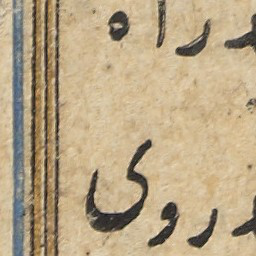 د راه
د روی